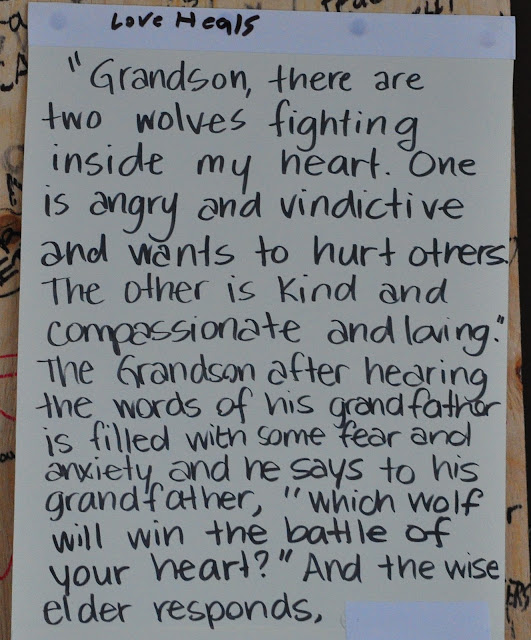 Love Heals
"Grandson, there are
two wolves fighting
inside my heart. One
is angry and vindictive
and wants to hurt others.
The other is kind and
compassionate and loving."
The Grandson after hearing
the words of his grandfather
is filled with some fear and
anxiety and he says to his
grandfather, "which wolf
will win the battle of
your heart?" And the wise
elder responds,